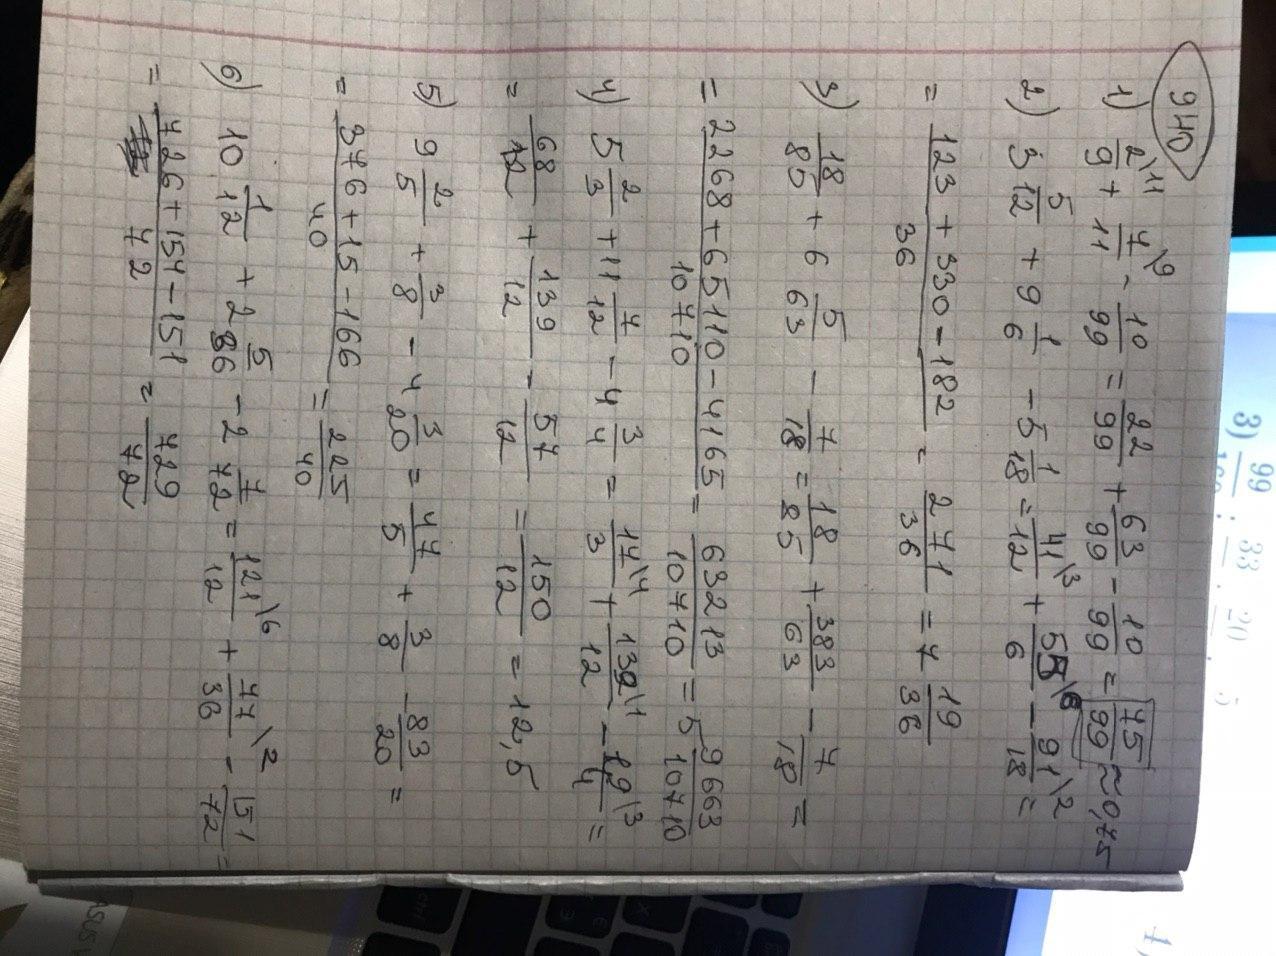 940
1) 2/9\11 + 7/11\9 - 10/99 = 22/99 + 63/99 - 10/99 = 75/99 ≈ 0,75
2) 3 5/12 + 9 1/6 - 5 1/18 = 41/12\3 + 55/6\6 - 91/18\2 =
= (123 + 330 - 182)/36 = 271/36 = 7 19/36
3) 18/85 + 6 5/63 - 7/18 = 18/85 + 383/63 - 7/18 =
= (2268 + 65110 - 4165)/10710 = 63213/10710 = 5 9663/10710
4) 5 2/3 + 11 7/12 - 4 3/4 = 17/3\4 + 139/12\1 - 19/4\3 =
= 68/12 + 139/12 - 57/12 = 150/12 = 12,5
5) 9 2/5 + 3/8 - 4 3/20 = 47/5 + 3/8 - 83/20 =
= (376 + 15 - 166)/40 = 225/40
6) 10 1/12 + 2 5/36 - 2 7/72 = 121/12\6 + 77/36\2 - 151/72 =
= (726 + 154 - 151)/72 = 729/72
3) 99 : 33 · 20 : 5
ASUS
Ctrl